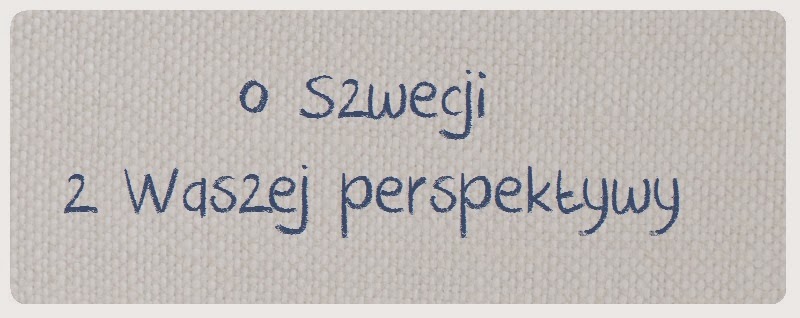 o Szwecji
z Waszej perspektywy